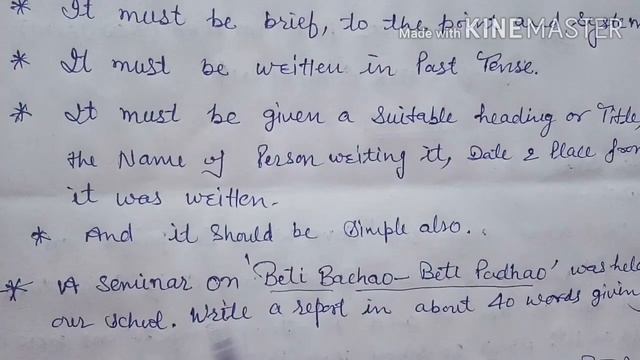 * It must be brief, to the point and System
Made with KINEMASTER
* It must be written in Past Tense.
* It must be given a Suitable heading or Title
the Name of Person writing it, Date & Place from
it was written.
* And it should be Simple also.
* A Seminar on 'Beti Bachao - Beti Padhao' was held
our school. Write a report in about 40 words giving